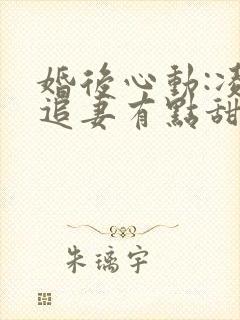 婚後心動:凌
追妻有點甜
朱璃宇